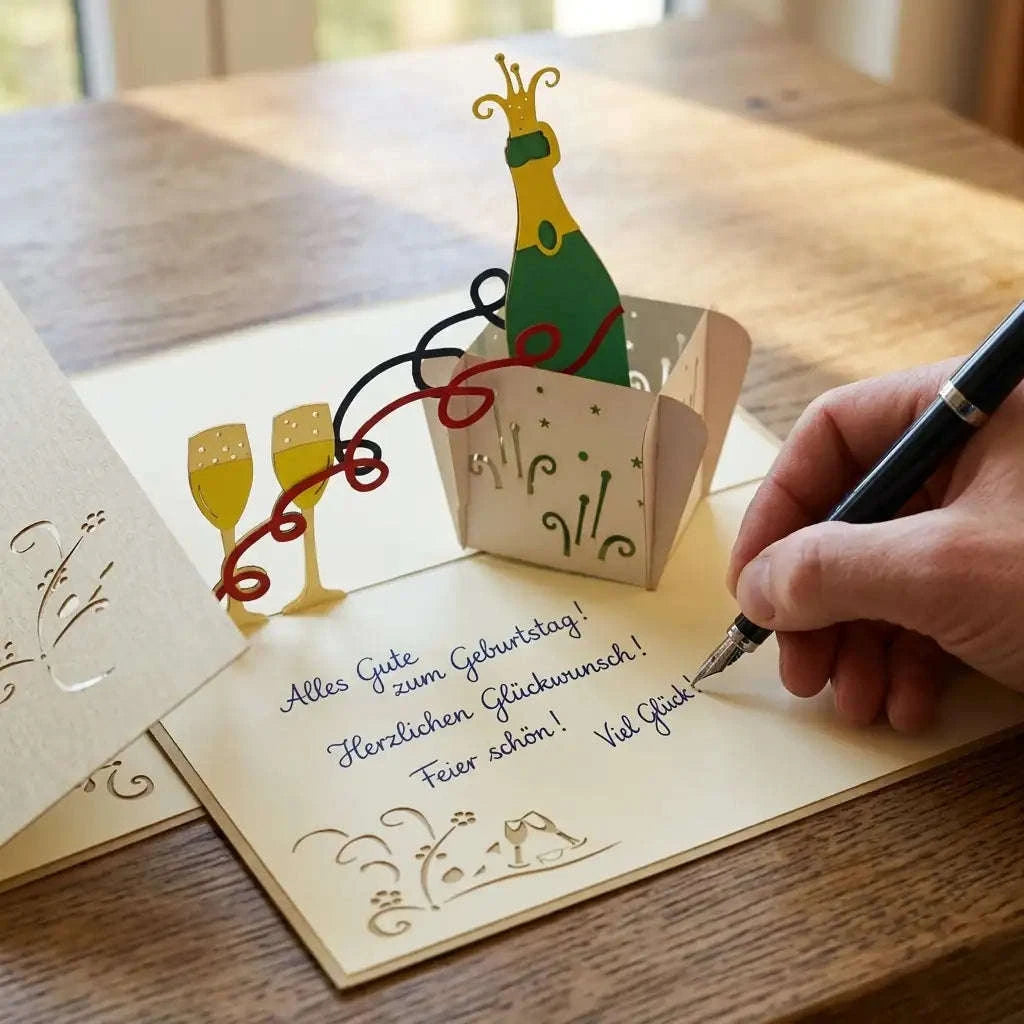 Alles Gute
zum Geburtstag!
Herzlichen Glückwunsch!
Feier schön!
Viel Glück!